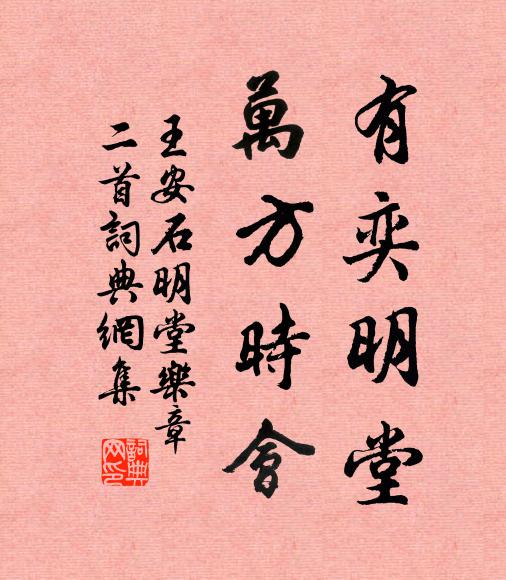 有奕明堂
萬方時會
王安石明堂樂章
二首詞典網集
詞典网印